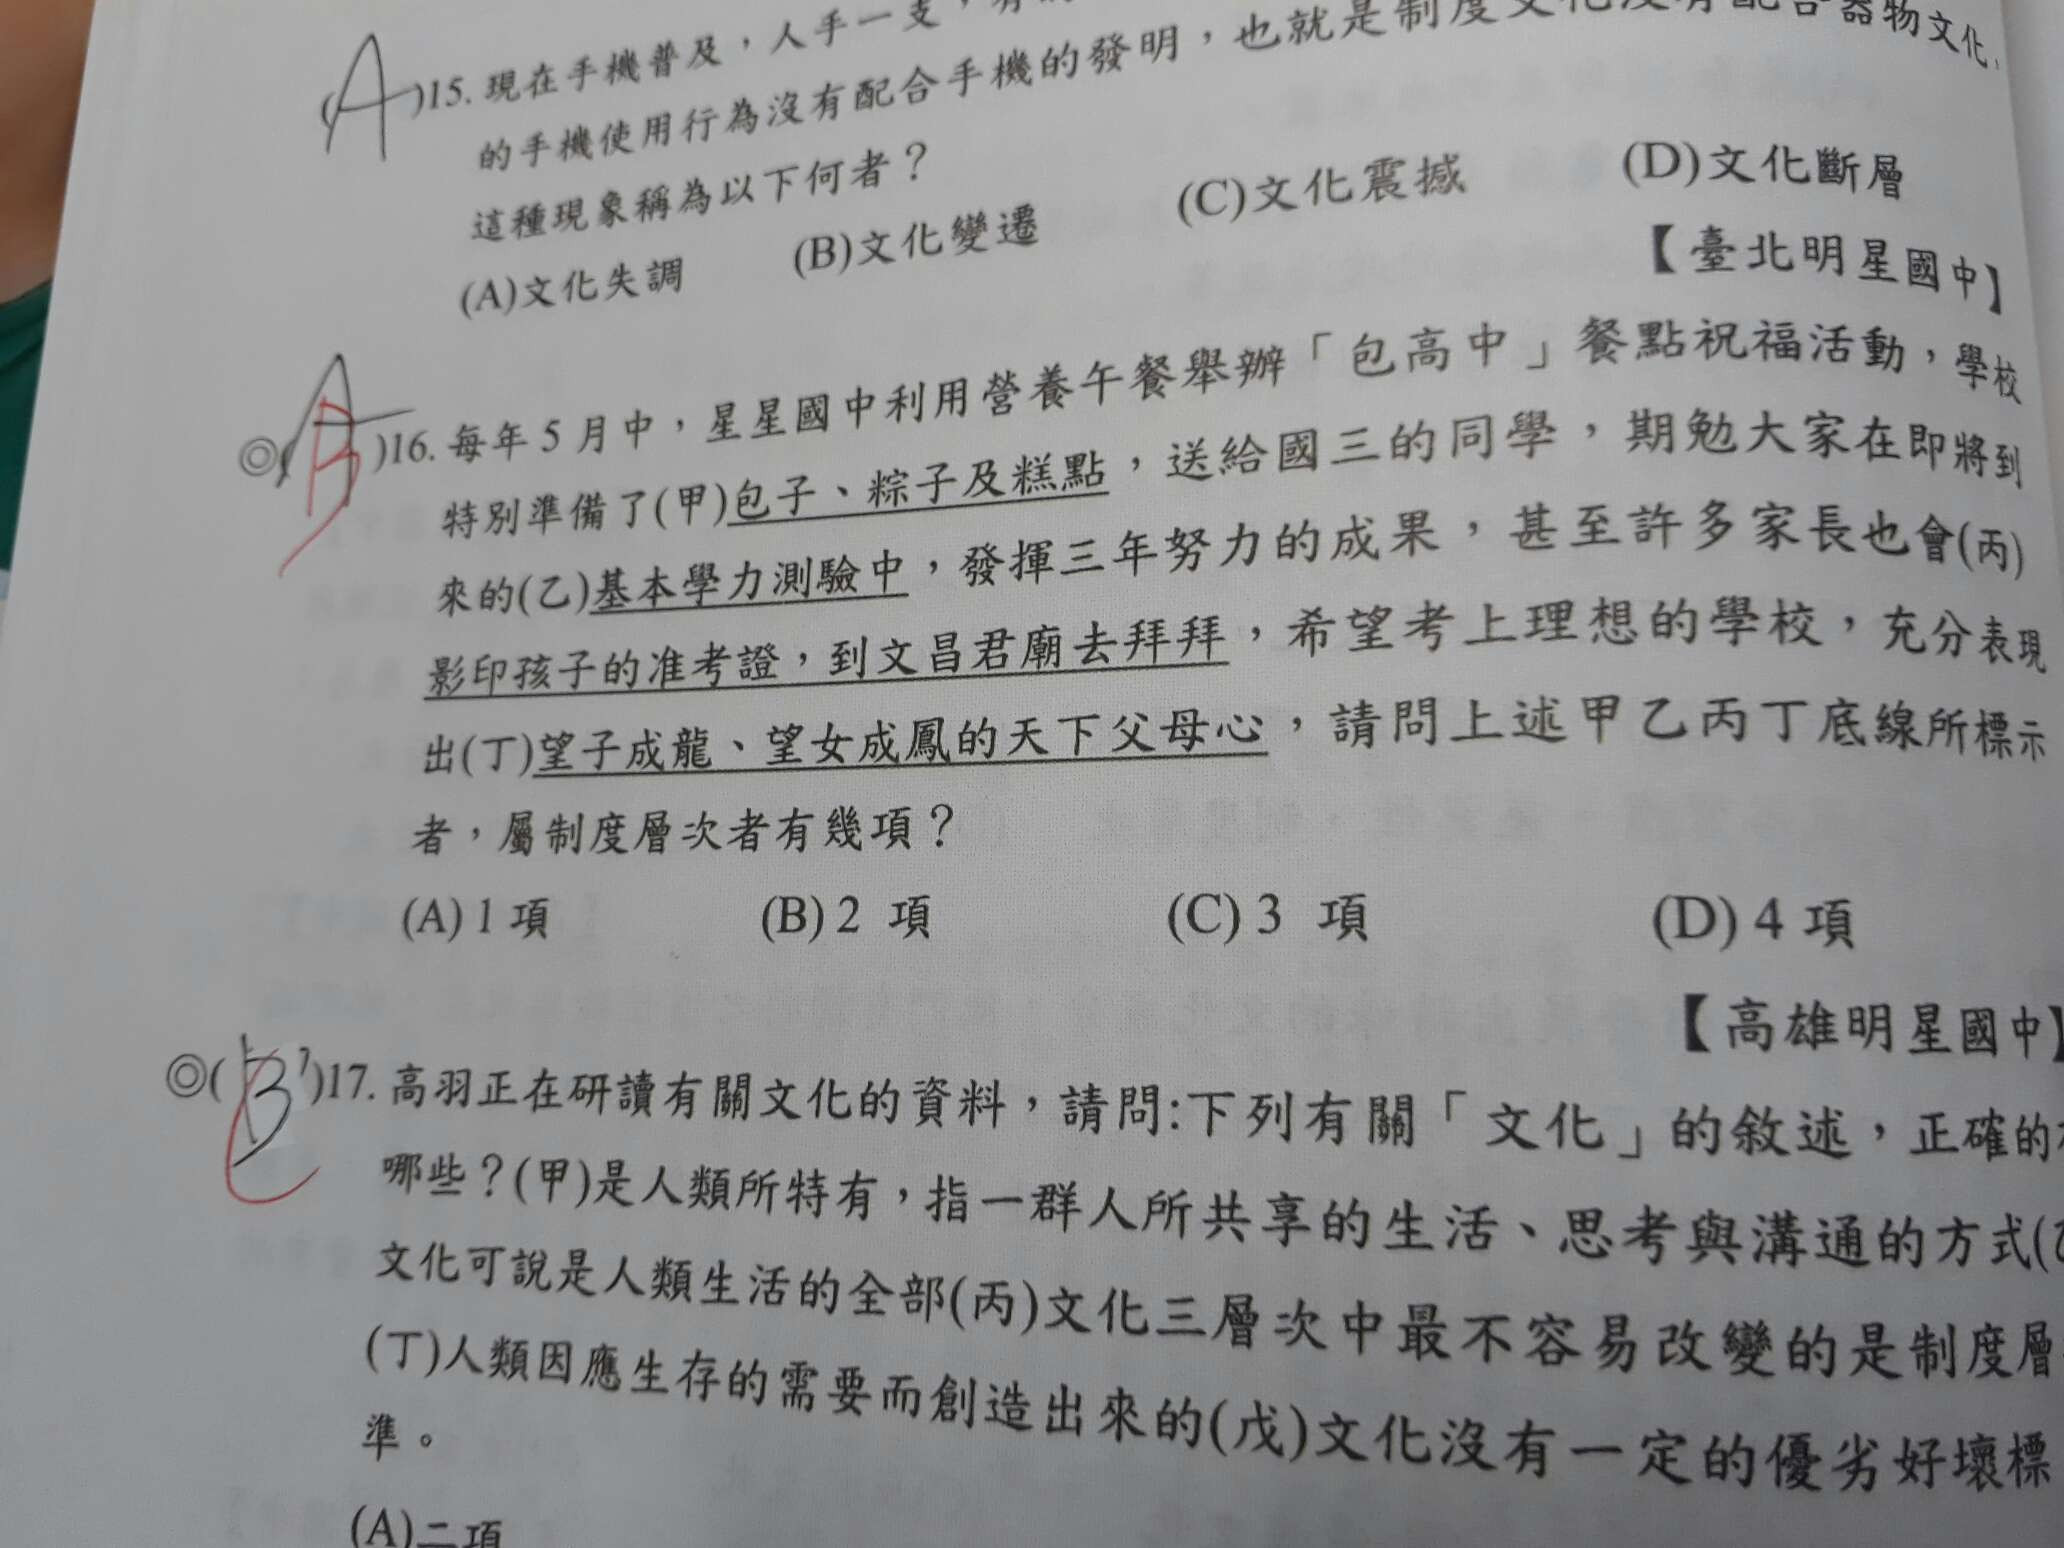 (A)15. 現在手機普及，人手一支，
的手機使用行為沒有配合手機的發明，也就是制度文化沒有配合器物文化，
這種現象稱為以下何者？
(A)文化失調 (B)文化變遷 (C)文化震撼 (D)文化斷層
【臺北明星國中】
◎(A B)16. 每年 5 月中，星星國中利用營養午餐舉辦「包高中」餐點祝福活動，學校
特別準備了(甲)包子、粽子及糕點，送給國三的同學，期勉大家在即將到
來的(乙)基本學力測驗中，發揮三年努力的成果，甚至許多家長也會(丙)
影印孩子的准考證，到文昌君廟去拜拜，希望考上理想的學校，充分表現
出(丁)望子成龍、望女成鳳的天下父母心，請問上述甲乙丙丁底線所標示
者，屬制度層次者有幾項？
(A) 1 項 (B) 2 項 (C) 3 項 (D) 4 項
【高雄明星國中】
◎(B C)17. 高羽正在研讀有關文化的資料，請問:下列有關「文化」的敘述，正確的
哪些？(甲)是人類所特有，指一群人所共享的生活、思考與溝通的方式(
文化可說是人類生活的全部(丙)文化三層次中最不容易改變的是制度層
(丁)人類因應生存的需要而創造出來的(戊)文化沒有一定的優劣好壞標
準。
(A)二項